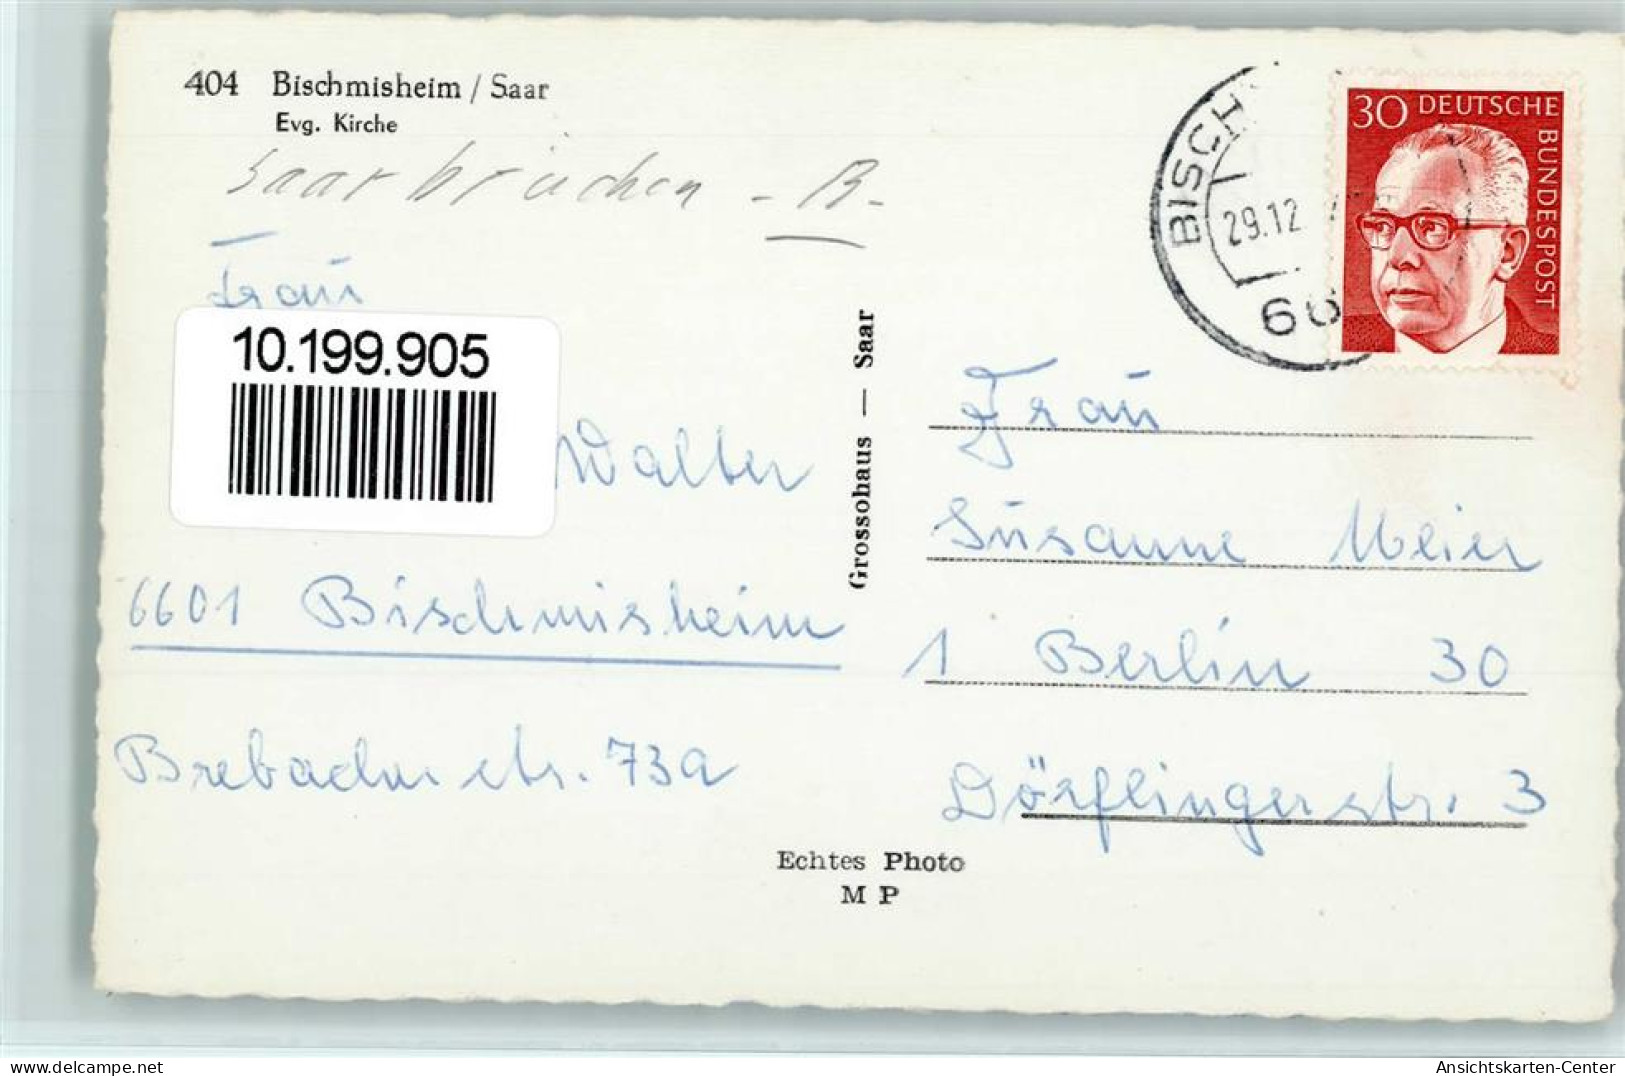 404 Bischmisheim / Saar
Evg. Kirche
Saarbrücken - B -
Frau
10.199.905
Walter
6601 Bischmisheim
Brebacher str. 73a
Grossohaus — Saar
Echtes Photo
M P
BISCH
29.12
66
30 DEUTSCHE BUNDESPOST
Frau
Susanne Meier
1 Berlin 30
Dörflingerstr. 3
www.delcampe.net
Ansichtskarten-Center